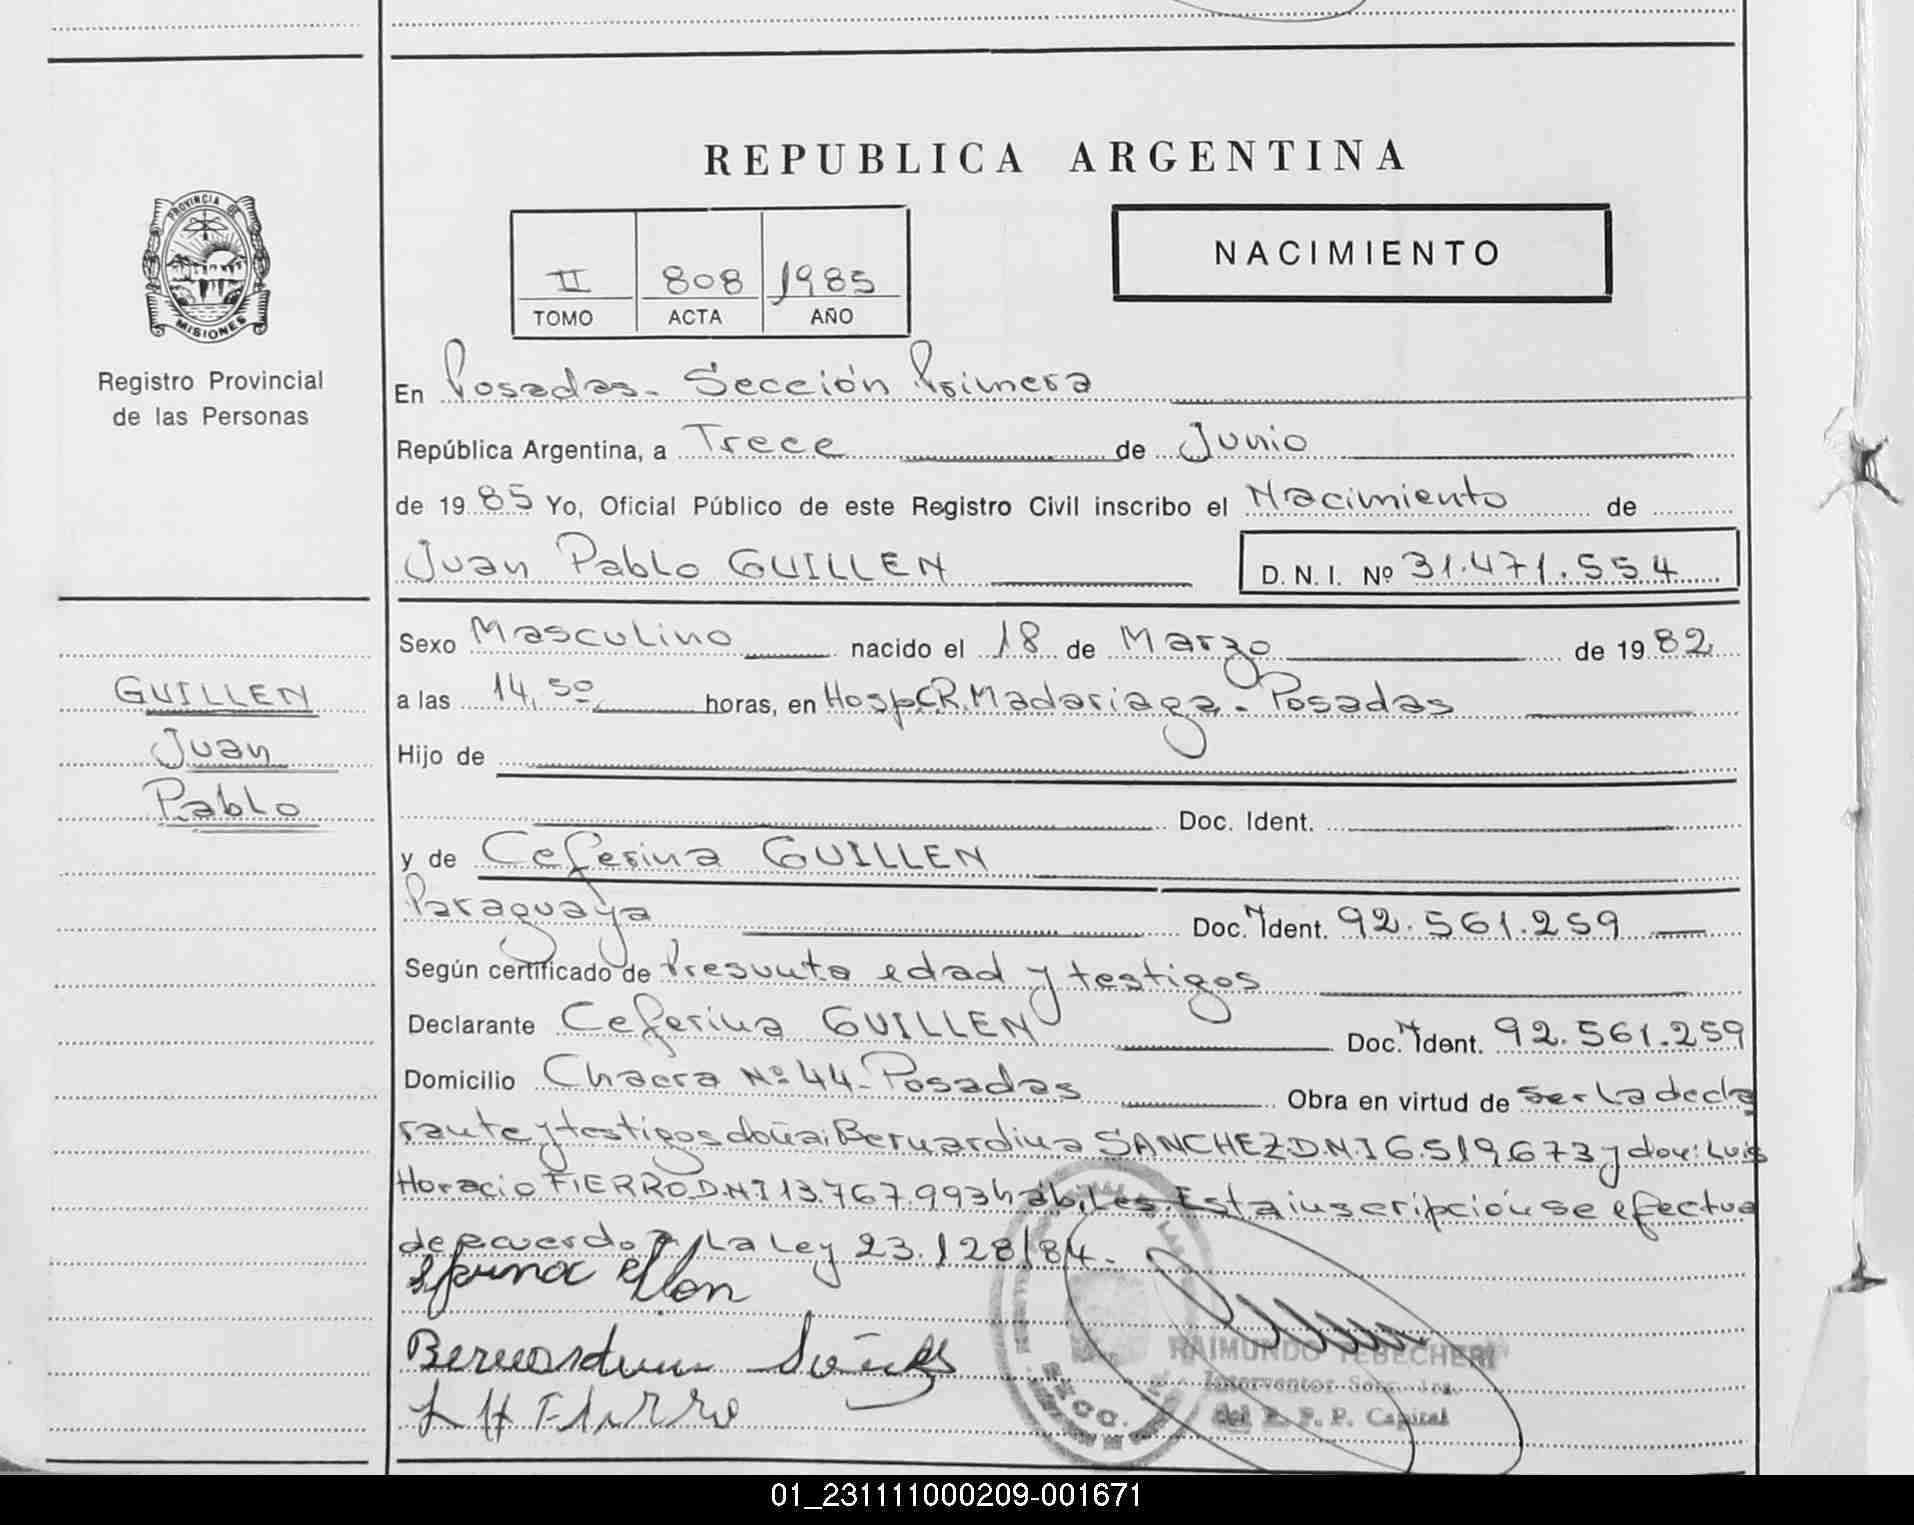 REPUBLICA ARGENTINA
PROVINCIA DE
MISIONES
Registro Provincial
de las Personas
II 808 1985
TOMO ACTA AÑO
NACIMIENTO
En Posadas.- Sección Primera
República Argentina, a Trece de Junio
de 1985 Yo, Oficial Público de este Registro Civil inscribo el Nacimiento de
Juan Pablo GUILLEN D.N.I. Nº 31.471.554
GUILLEN
Juan
Pablo
Sexo Masculino nacido el 18 de Marzo de 1982
a las 14,50 horas, en Hosp.R.Madariaga.- Posadas
Hijo de
Doc. Ident.
y de Ceferina GUILLEN
Paraguaya Doc. Ident. 92.561.259
Según certificado de Presunta edad y testigos
Declarante Ceferina GUILLEN Doc. Ident. 92.561.259
Domicilio Chacra Nº 44- Posadas Obra en virtud de ser la decla
rante y testigos doña: Bernardina SANCHEZ D.N.I 6.519.673 y don: Luis
Horacio FIERRO D.N.I 13.767.993 hábiles. Esta inscripción se efectua
de acuerdo a la Ley 23.128/84.-
Bernardina
L H Fierro
SECC.
RAIMUNDO TEBECHERI
Interventor Secc. 1ra.
del R. P. P. Capital
01_231111000209-001671